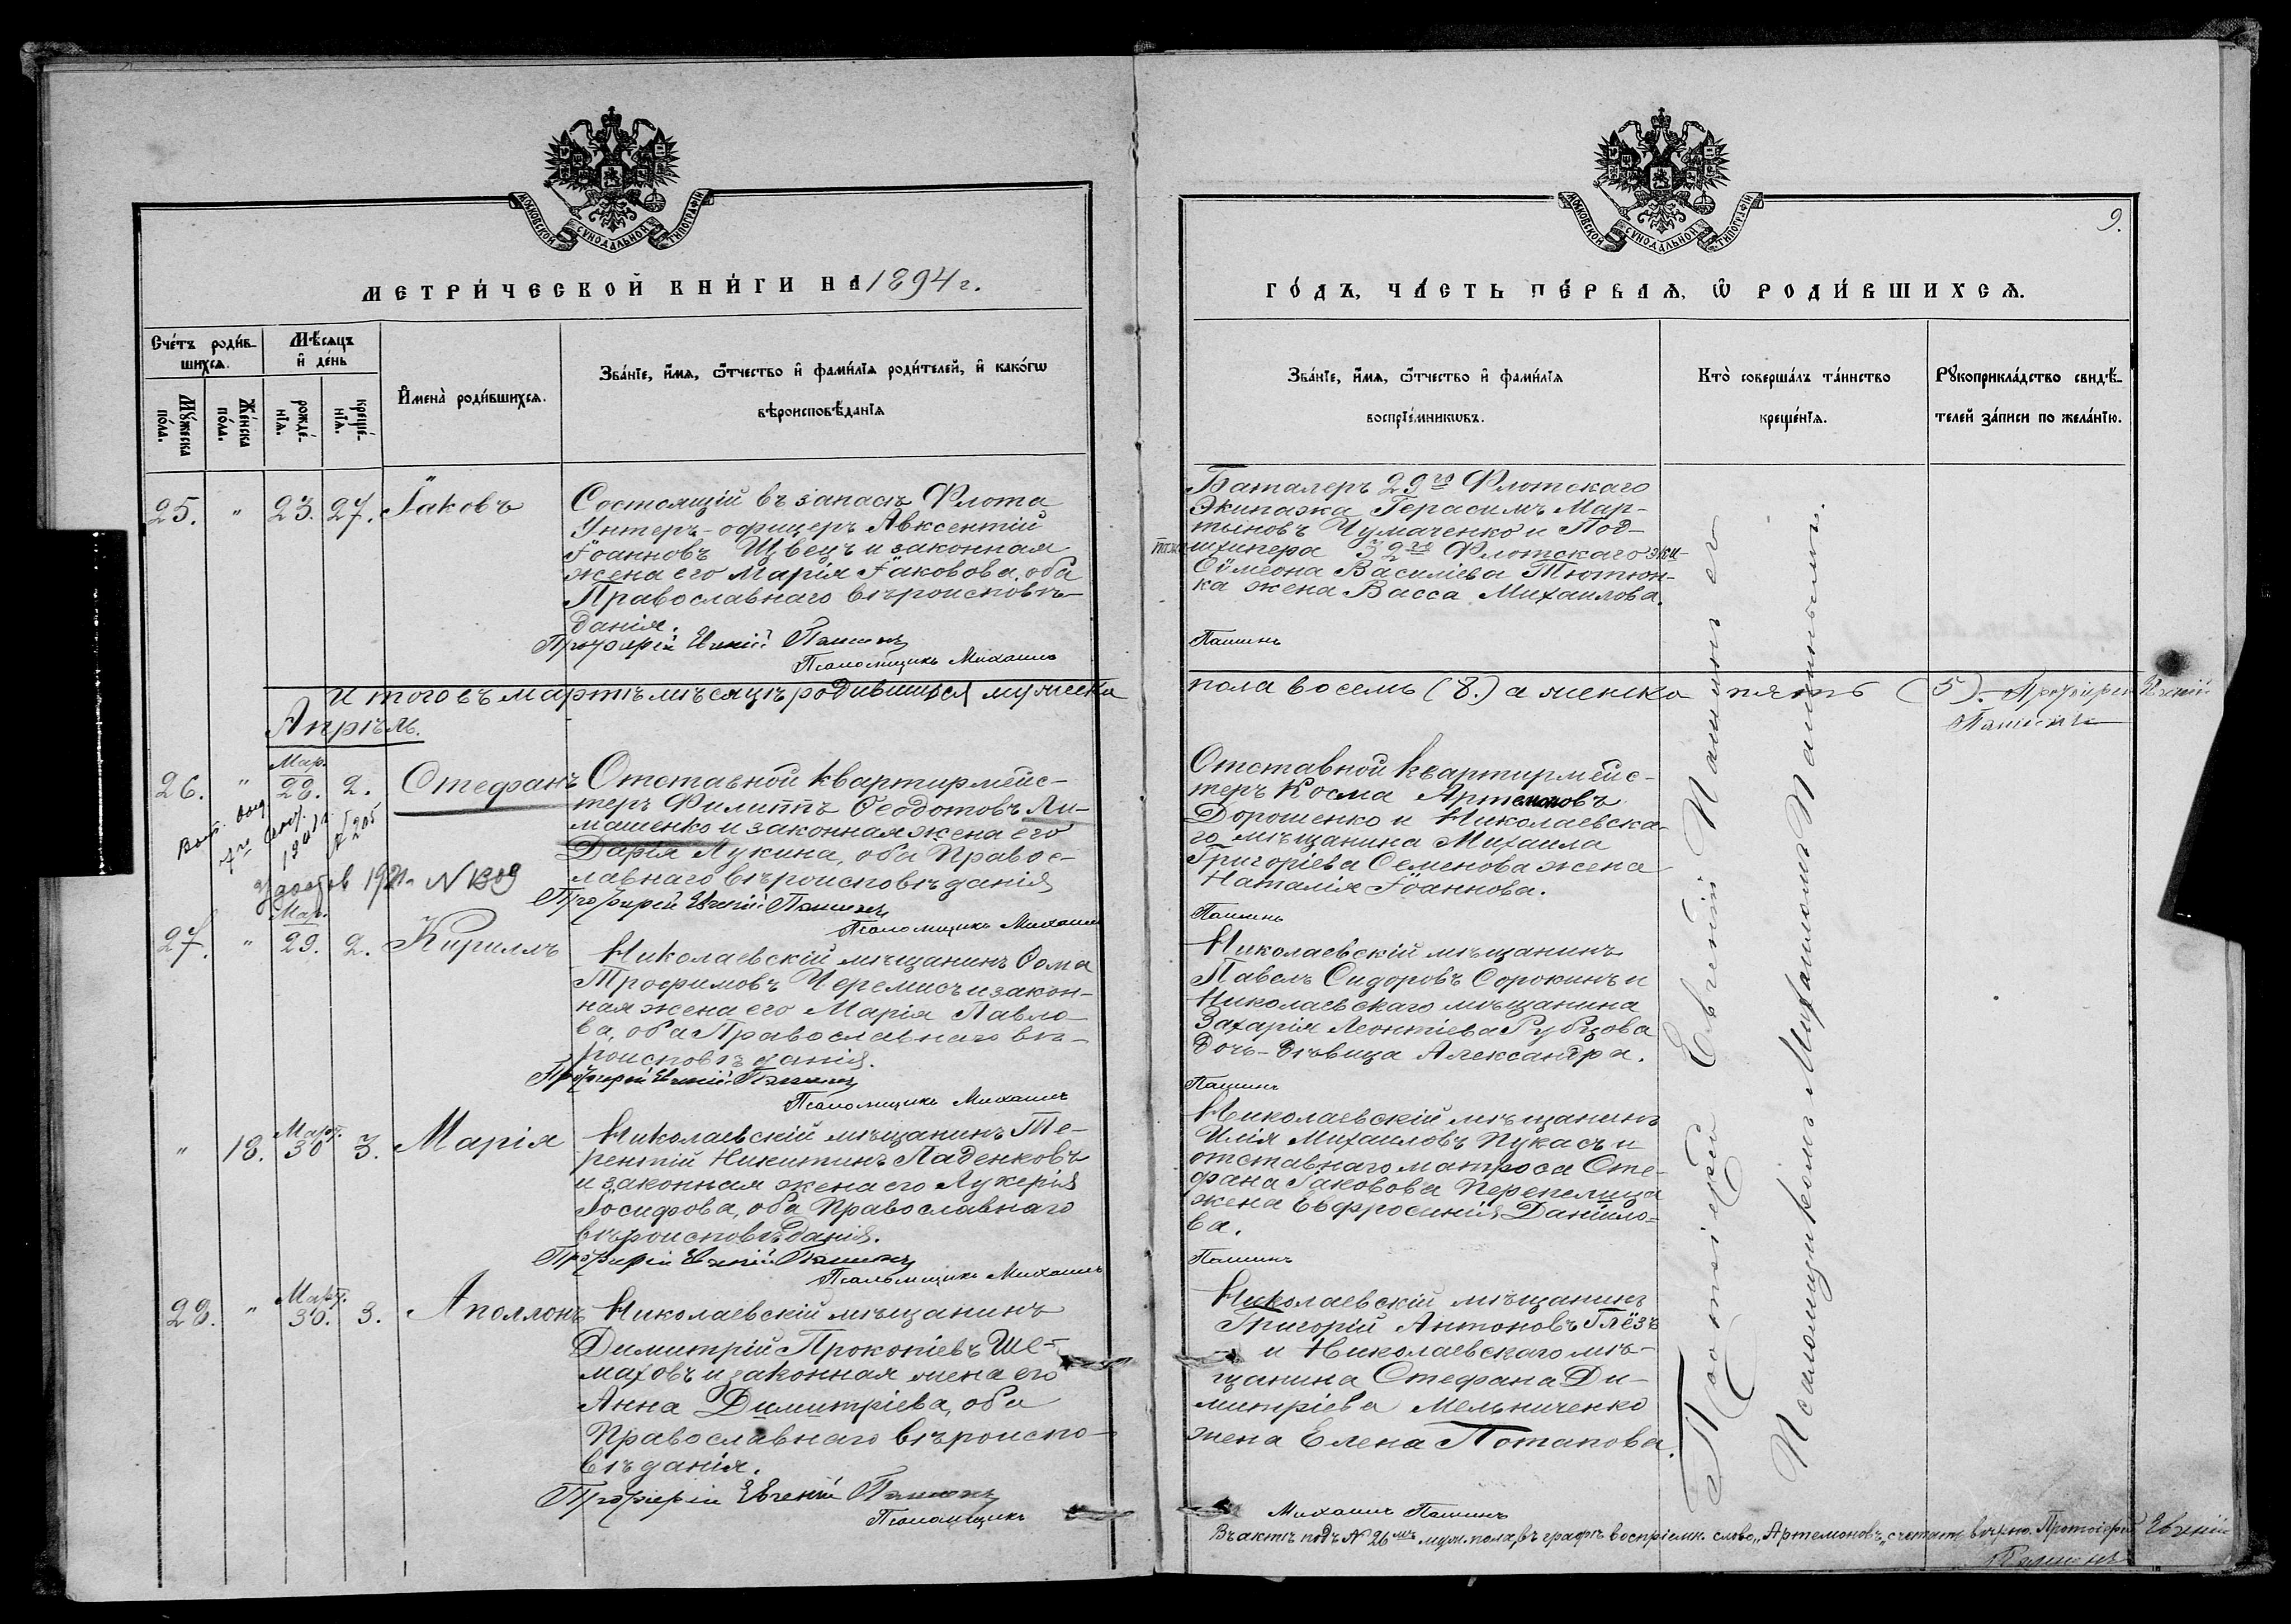 МОСКОВСКОЙ СѴНОДАЛЬНОЙ ТИПОГРАФІИ
МЕТРИ́ЧЕСКОЙ КНИ́ГИ НА 1894 г.
Сче́тъ роди́в-
шихсѧ.
Мѣ́сѧцъ
и҆ де́нь
Мꙋ́жеска
по́ла.
Же́нска
по́ла.
рожде́-
нїѧ.
креще́-
нїѧ.
И҆мена̀ роди́вшихсѧ.
Зва́нїе, и҆́мѧ, ѻ҆́тчество и҆ фамѝлїѧ роди́телей, и҆ како́гѡ
вѣроисповѣ́данїѧ
25. " 23. 27. Іаковъ
Состоящій въ запасѣ Флота
Унтеръ-офицеръ Авксентій
Іоанновъ Швецъ и законная
жена его Марія Іаковова, оба
Православнаго вѣроисповѣ-
данія.
Протоіерей Евгеній Пашинъ
Псаломщикъ Михаилъ
Итого въ мартѣ мѣсяцѣ родившихся мужеска
Апрѣль.
26. " Мар. 28. 2. Стефанъ
Отставной квартирмейс-
теръ Филиппъ Ѳеодотовъ Ли-
машенко и законная жена его
Дарія Лукина, оба Правос-
лавнаго вѣроисповѣданія
Протоіерей Евгеній Пашинъ
Псаломщикъ Михаилъ
Вып. выд.
№ 205
N 1309
27. " Мар. 29. 2. Кириллъ
Николаевскій мѣщанинъ Ѳома
Трофимовъ Черемисъ и закон-
ная жена его Марія Павло-
ва, оба Православнаго вѣ-
роисповѣданія.
Протоіерей Евгеній Пашинъ
Псаломщикъ Михаилъ
" 18. Март. 30 3. Марія
Николаевскій мѣщанинъ Те-
рентій Никитинъ Ладенковъ
и законная жена его Лукерія
Іосифова, оба Православнаго
вѣроисповѣданія.
Протоіерей Евгеній Пашинъ
Псаломщикъ Михаилъ
28. " Март. 30. 3. Аполлонъ
Николаевскій мѣщанинъ
Димитрій Прокопіевъ Ше-
маховъ и законная жена его
Анна Димитріева, оба
Православнаго вѣроиспо-
вѣданія.
Протоіерей Евгеній Пашинъ
Псаломщикъ
МОСКОВСКОЙ СѴНОДАЛЬНОЙ ТИПОГРАФІИ
9.
ГО́ДЪ, ЧА́СТЬ ПЕ́РВАѦ, Ѡ҆ РОДИ́ВШИХСѦ.
Зва́нїе, и҆́мѧ, ѻ҆́тчество и҆ фамѝлїѧ
воспрїе́мникѡвъ.
Кто̀ соверша́лъ та́инство
креще́нїѧ.
Рꙋкоприкла́дство свидѣ́-
телей за́писи по жела́нїю.
Баталеръ 29го Флотскаго
Экипажа Герасимъ Мар-
тыновъ Чумаченко и Под-
шхипера 32го Флотскаго эки-
Сѵмеона Василіева Тютюн-
ка жена Васса Михаилова.
Пашинъ
пола восемь (8.) а женска пять (5). Протоіерей Евгеній
Пашинъ
Отставной квартирмейс-
теръ Косма Артемоновъ
Дорошенко и Николаевска-
го мѣщанина Михаила
Григоріева Семенова жена
Наталія Іоаннова.
Пашинъ
Николаевскій мѣщанинъ
Павелъ Сидоровъ Сорокинъ и
Николаевскаго мѣщанина
Захарія Леонтіева Рубцова
дочь-дѣвица Александра.
Пашинъ
Николаевскій мѣщанинъ
Илія Михаиловъ Пукасъ и
отставнаго матроса Сте-
фана Іаковова Перепелица
жена Евфросинія Даниило-
ва.
Пашинъ
Николаевскій мѣщанинъ
Григорій Антоновъ Глёзъ
и Николаевскаго мѣ-
щанина Стефана Ди-
митріева Мельниченко
жена Елена Потапова.
Михаилъ Пашинъ
Протоіерей Евгеній Пашинъ съ
Псаломщикомъ Михаиломъ Пашинымъ.
Въ актѣ подъ № 26мъ муж. пола, въ графѣ воспріемн. слово "Артемоновъ" считать вѣрно. Протоіерей Евгеній
Пашинъ